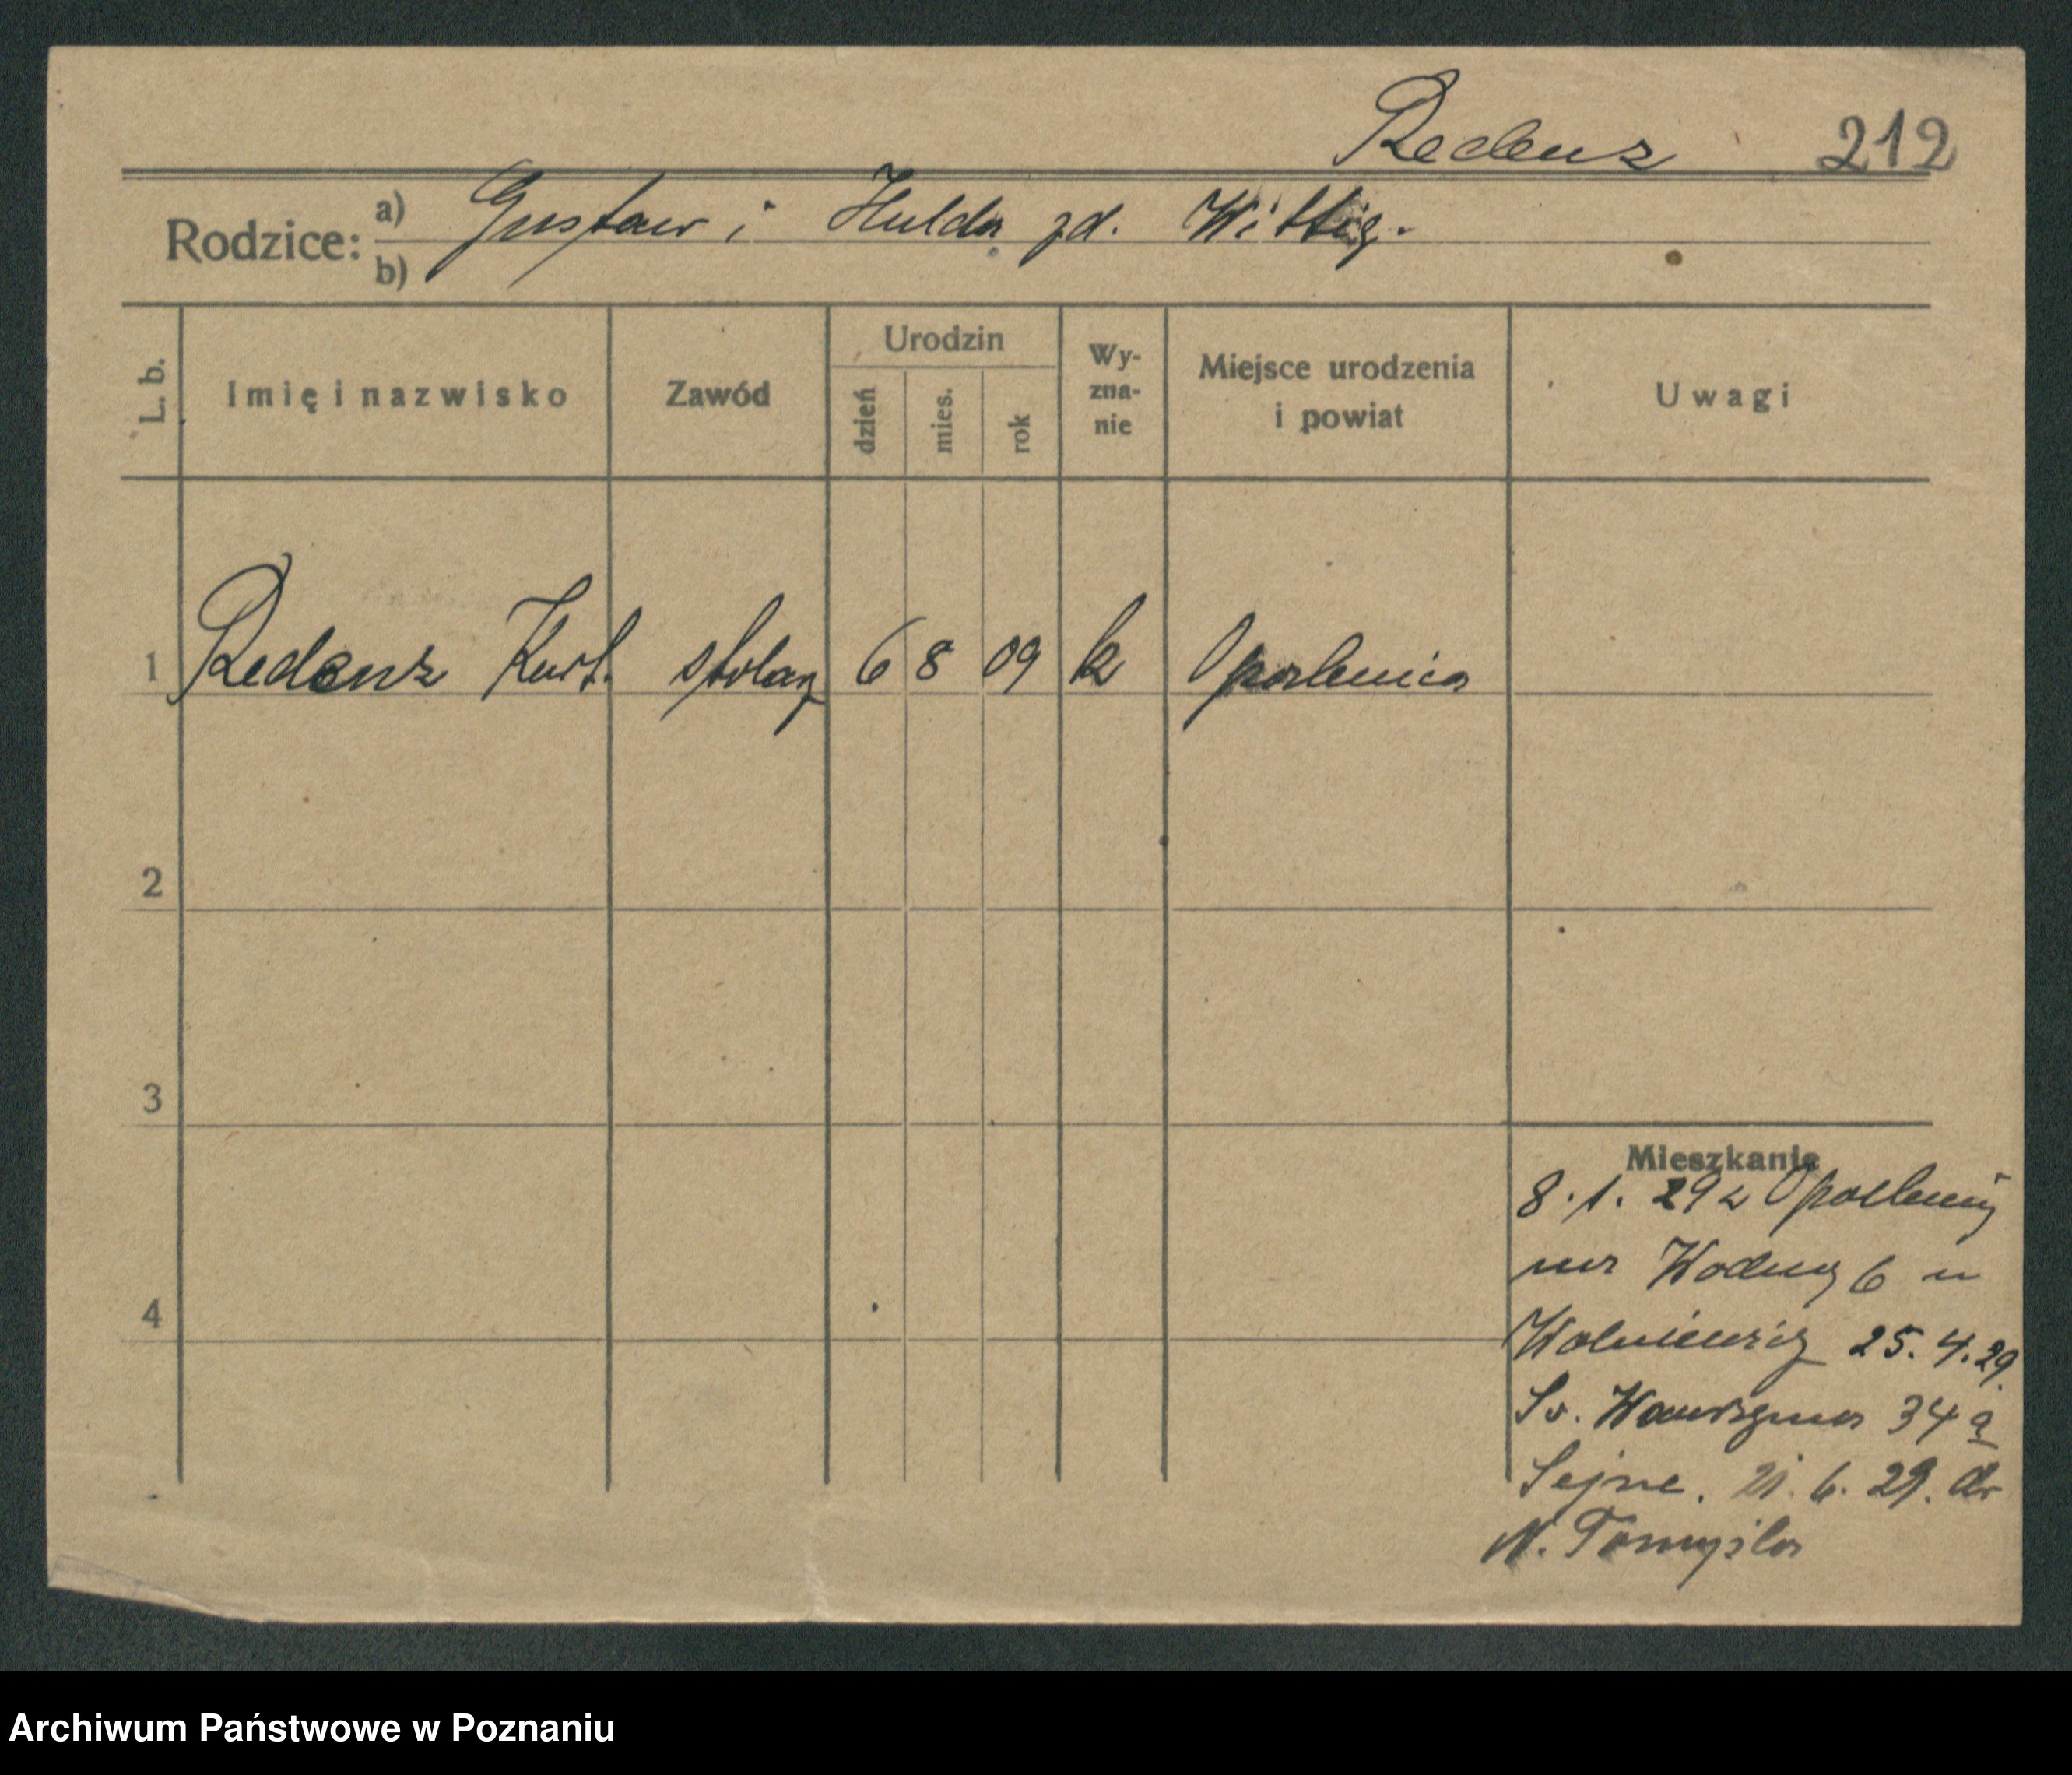 Redenz 212
Rodzice: a) Gustaw i Hulda zd. Wittig.
b)
L. b. Imię i nazwisko Zawód Urodzin dzień mies. rok Wy-zna-nie Miejsce urodzenia i powiat Uwagi
1 Redenz Kurt. stolarz 6 8 09 k Opalenica
2
3
4
Mieszkanie
8. 1. 29 z Opalenicy
na Wodną 6 u
Wolniewicz 25. 4. 29.
Św. Wawrzyńca 34 a
21. 6. 29. do
N. Tomyśla
Archiwum Państwowe w Poznaniu